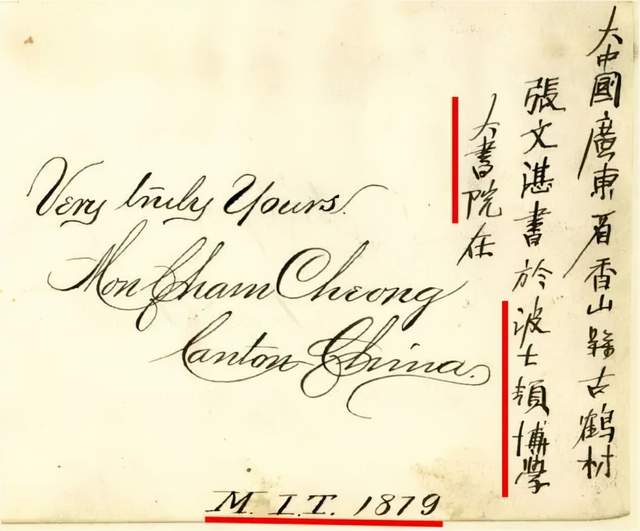 大中國廣東省香山縣古鶴村
張文湛書於波士頓博學
大書院在
Very truly Yours.
Mon Cham Cheong
Canton China.
M. I. T. 1879